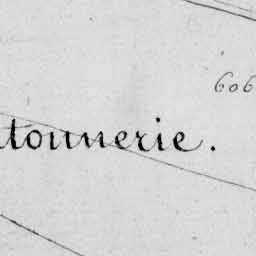 606
tonnerie.